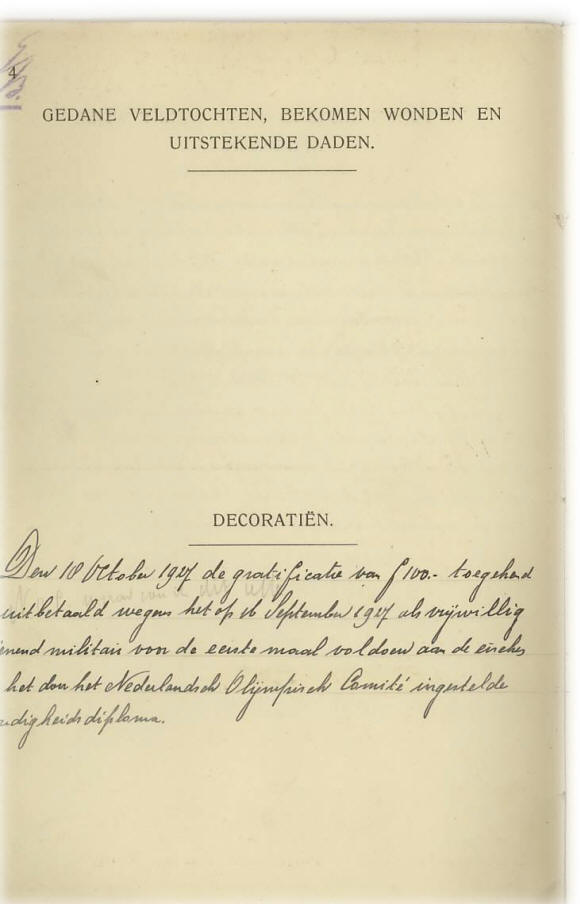 4
GEDANE VELDTOCHTEN, BEKOMEN WONDEN EN
UITSTEKENDE DADEN.
DECORATIËN.
Den 18 October 1927 de gratificatie van f 100.- toegekend
uitbetaald wegens het op 16 September 1927 als vrijwillig
enend militair voor de eerste maal voldoen aan de eischen
het door het Nederlandsch Olijmpisch Comité ingestelde
digheidsdiploma.